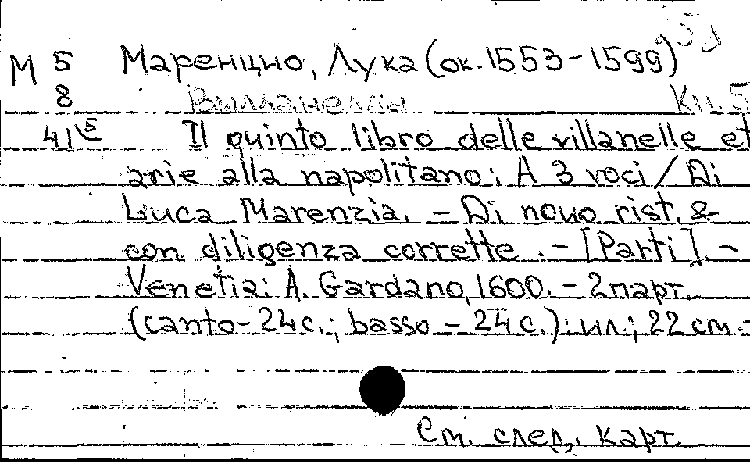 М 5 Маренцио, Лука (ок. 1553-1599)
8 Вилланеллы Кн. 5
41 5 Il quinto libro delle villanelle et
arie alla napolitano: A 3 voci / Di
Luca Marenzia. - Di novo rist. &
con diligenza corrette. - [Parti]. -
Venetia: A. Gardano, 1600. - 2 парт.
(canto - 24 с.; basso - 24 с.): ил.; 22 см. -
См. след. карт.